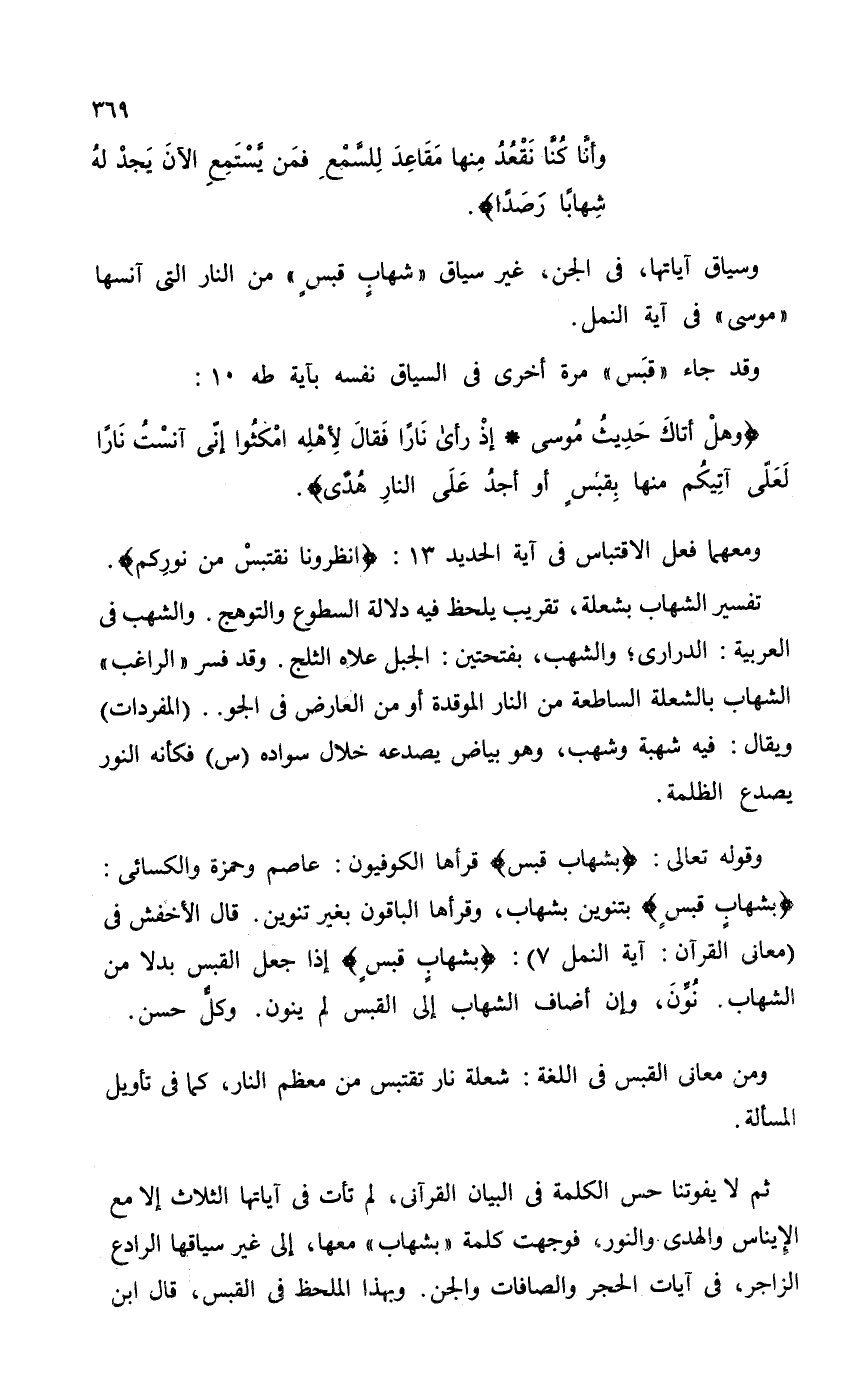 ٣٦٩
وأنَّا كُنَّا نَقْعُدُ مِنها مَقَاعِدَ لِلسَّمْعِ فمَن يَّسْتَمِعِ الآنَ يَجدْ لهُ
شِهابًا رَصَدًا﴾.
وسياق آياتها، فى الجن، غير سياق «شهابٍ قبسٍ» من النار التى آنسها
«موسى» فى آية النمل.
وقد جاء «قبَس» مرة أخرى فى السياق نفسه بآية طه ١٠ :
﴿وهلْ أتاكَ حَدِيثُ مُوسى * إذْ رأىٰ نَارًا فَقالَ لِأهْلِه امْكثُوا إنّى آنسْتُ نَارًا
لَعَلّى آتِيكُم منها بِقبَسٍ أو أجدُ عَلَى النارِ هُدًى﴾.
ومعهما فعل الاقتباس فى آية الحديد ١٣ : ﴿انظرونا نقتبسْ من نورِكم﴾.
تفسير الشهاب بشعلة، تقريب يلحظ فيه دلالة السطوع والتوهج. والشهب فى
العربية : الدرارى؛ والشهب، بفتحتين : الجبل علاه الثلج. وقد فسر «الراغب»
الشهاب بالشعلة الساطعة من النار الموقدة أو من العارض فى الجو.. (المفردات)
ويقال : فيه شهبة وشهب، وهو بياض يصدعه خلال سواده (س) فكأنه النور
يصدع الظلمة.
وقوله تعالى : ﴿بشهاب قبس﴾ قرأها الكوفيون : عاصم وحمزة والكسائى :
﴿بشهابٍ قبسٍ﴾ بتنوين بشهاب، وقرأها الباقون بغير تنوين. قال الأخفش فى
(معانى القرآن : آية النمل ٧) : ﴿بشهابٍ قبسٍ﴾ إذا جعل القبس بدلا من
الشهاب. نُوِّنَ، وإن أضاف الشهاب إلى القبس لم ينون. وكلٌّ حسن.
ومن معانى القبس فى اللغة : شعلة نار تقتبس من معظم النار، كما فى تأويل
المسألة.
ثم لا يفوتنا حس الكلمة فى البيان القرآنى، لم تأت فى آياتها الثلاث إلا مع
الإيناس والهدى والنور، فوجهت كلمة «بشهاب» معها، إلى غير سياقها الرادع
الزاجر، فى آيات الحجر والصافات والجن. وبهذا الملحظ فى القبس، قال ابن